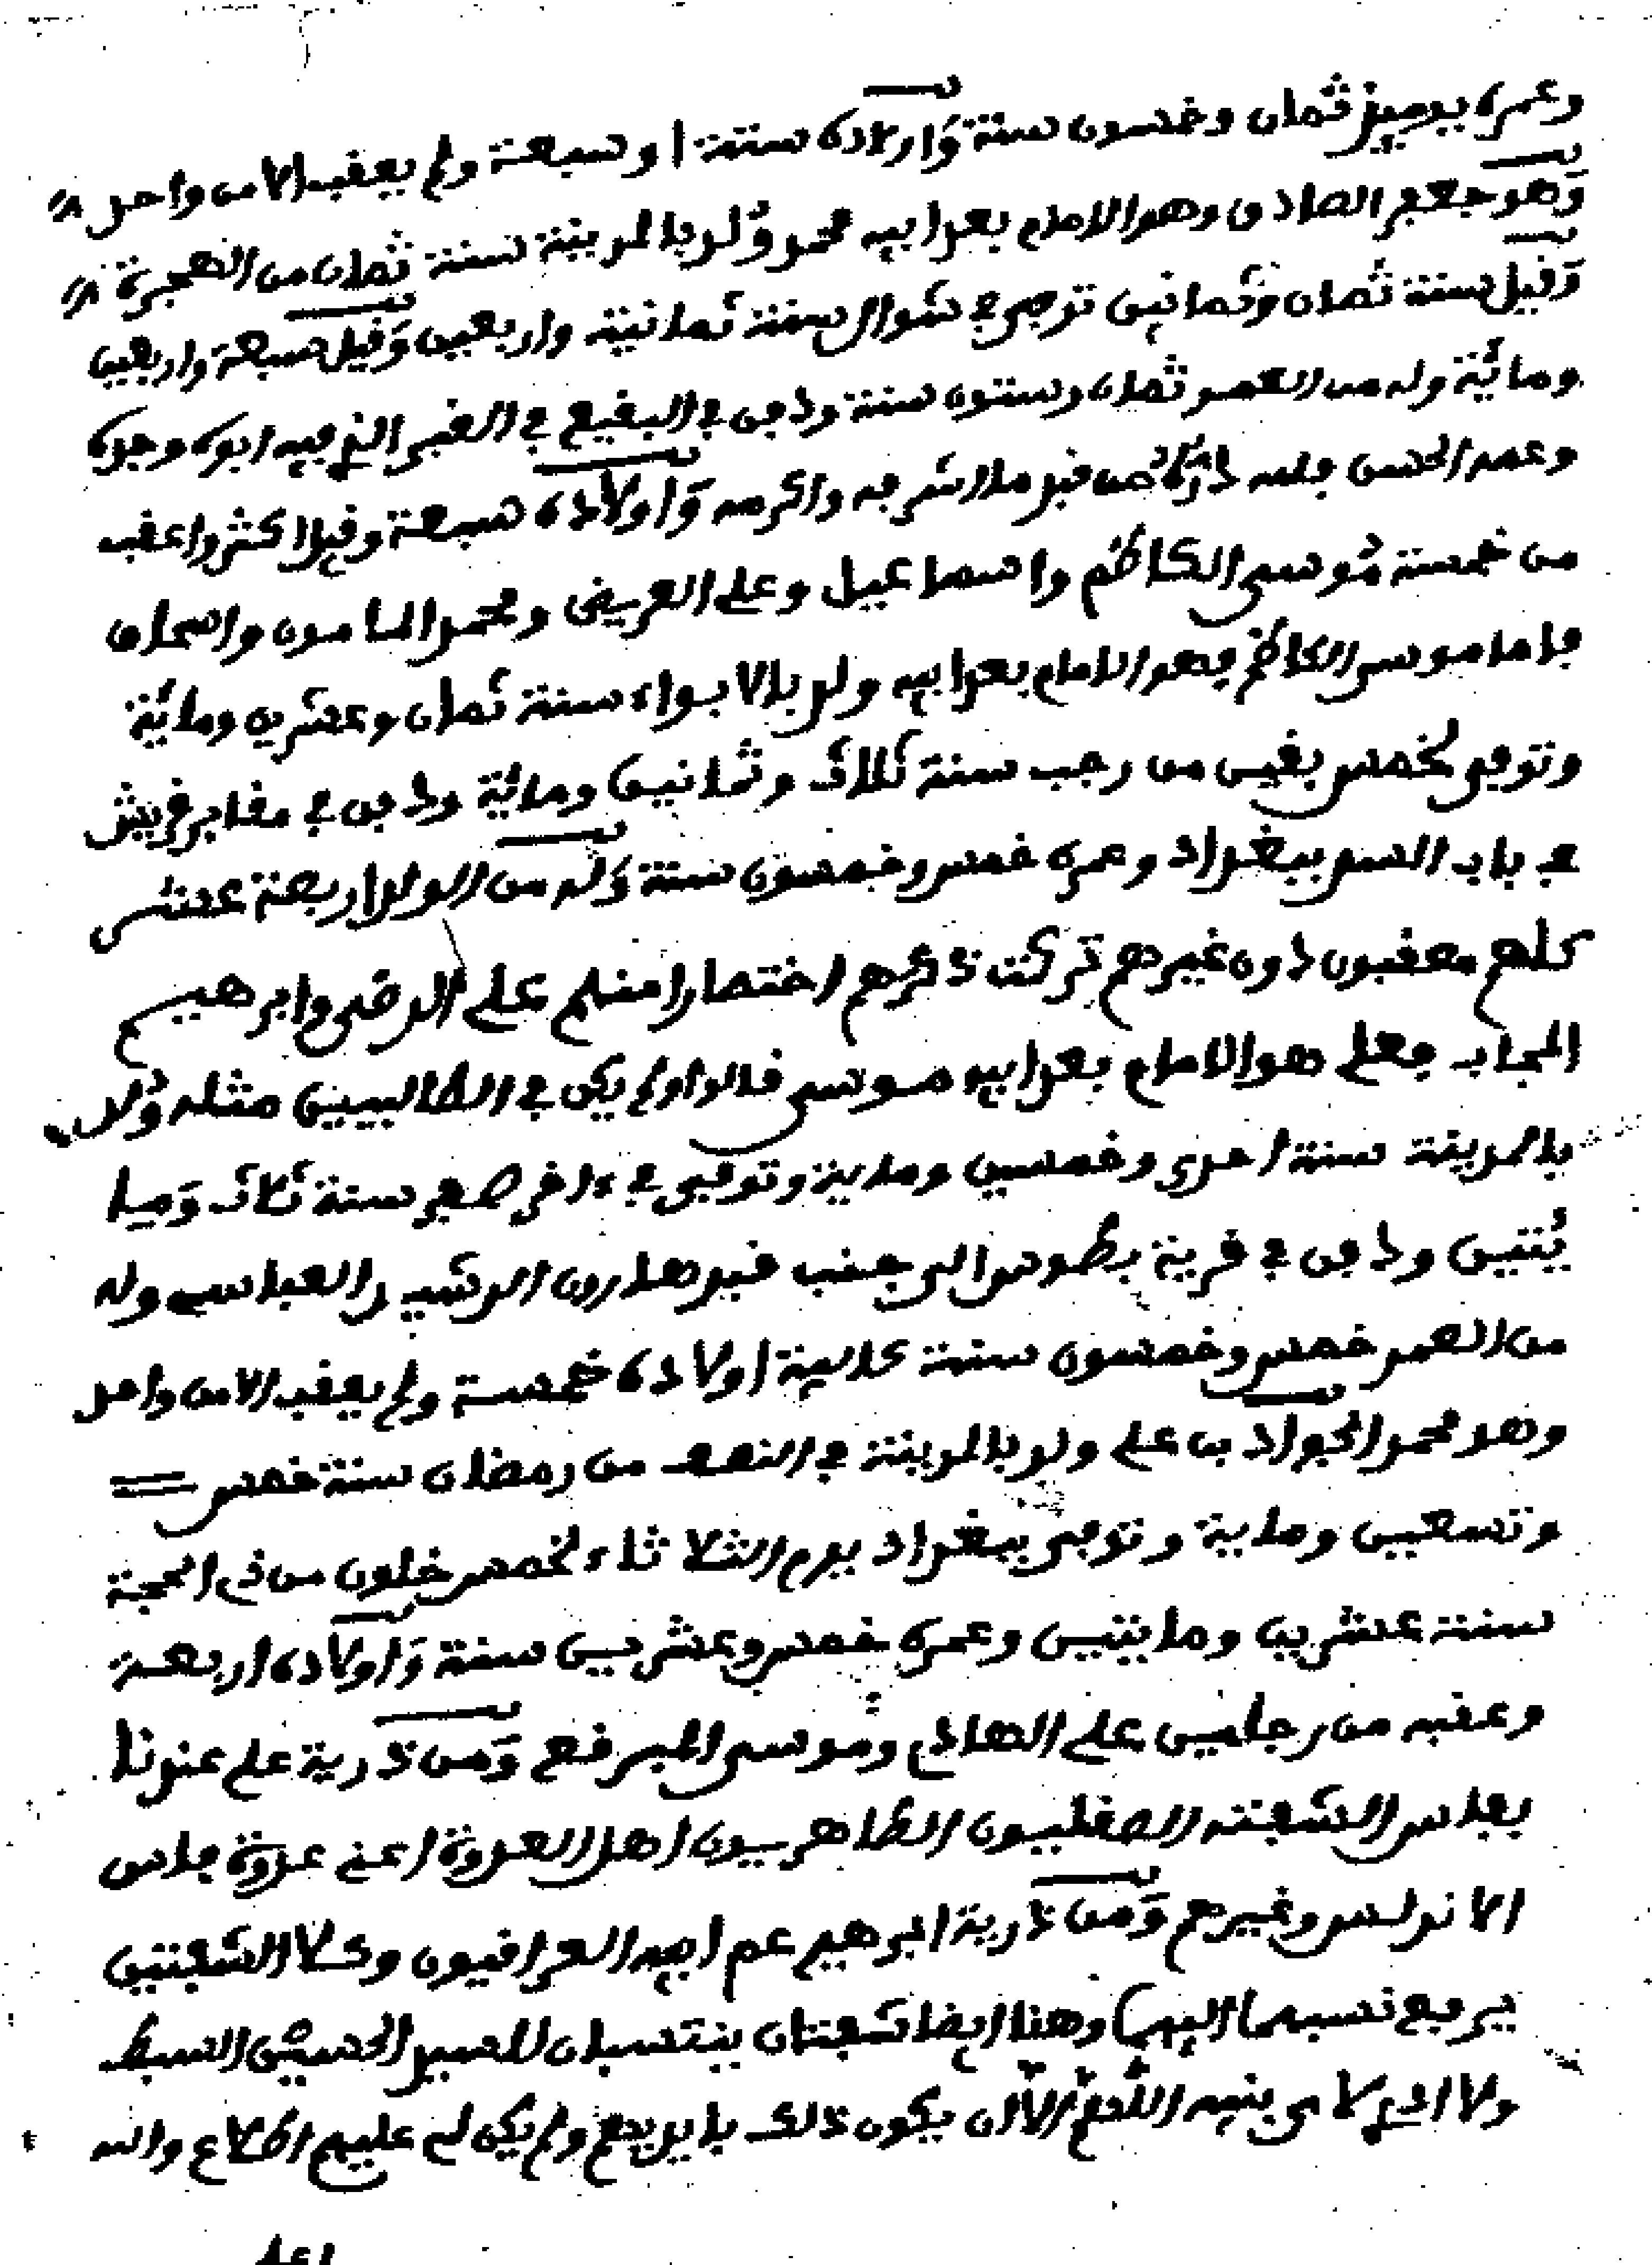 وعمره يوميذ ثمان وخمسون سنة وَاولاده ستة او سبعة ولم يعقب الا من واحد
وَهو جعفر الصادق وهو الامام بعد ابيه محمد وُلد بالمدينة سنة ثمان من الهجرة
وَقيل سنة ثمان وثمانين توفى في شوال سنة ثمانية واربعين وَقيل سبعة واربعين
ومائة وله من العمر ثمان وستون سنة ودفن في البقيع في القبر الذي فيه ابوه وجده
وعمه الحسن فلله دَرُّه من قبر ما اشرفه واكرمه وَاولاده سبعة وقيل اكثر واعقب
من خمسة مُوسى الكاظم واسماعيل وعلي العريضي ومحمد المامون واسحاق
فاما موسى الكاظم فهو الامام بعد ابيه ولد بالابواء سنة ثمان وعشرين ومائة
وتوفى لخمس بقين من رجب سنة ثلاث وثمانين ومائة ودفن في مقابر قريش
في باب السر ببغداد وعمره خمس وخمسون سنة وَله من الولد اربعة عشر
كلهم معقبون دون غيرهم تركت ذكرهم اختصارا منهم علي الرضى وابرهيم
المجاب فعلي هو الامام بعد ابيه موسى قالوا ولم يكن في الطالبيين مثله وُلد
بالمدينة سنة احدى وخمسين وماية وتوفى في ءاخر صفر سنة ثلاث وَميا
يُتين ودفن في قرية بطوس الى جنب قبر هارون الرشيد العباسي وله
من العمر خمس وخمسون سنة كابيه اولاده خمسة ولم يعقب الا من واحد
وهو محمد الجواد بن علي ولد بالمدينة في النصف من رمضان سنة خمس
وتسعين وماية وتوفى ببغداد يوم الثلاثاء لخمس خلون من ذي الحجة
سنة عشرين ومايتين وعمره خمس وعشرين سنة وَاولاده اربعة
وعقبه من رجلين علي الهادي ومُوسى المبرقع وَمن ذرية علي عندنا
بفاس الشعبة الصقليون الطاهريون اهل العدوة اعني عدوة فاس
الاندلس وغيرهم وَمن ذرية ابرهيم عم ابيه العراقيون وكلا الشعبتين
يرفع نسبهما اليهما وهنا ايضا شعبتان ينتسبان للسيد الحسين السبط
ولا ادري لاي بنيه اللهمَّ الا ان يكون ذلك بايديهم ولم يكن لي عليهم اطلاع والله
اعلم